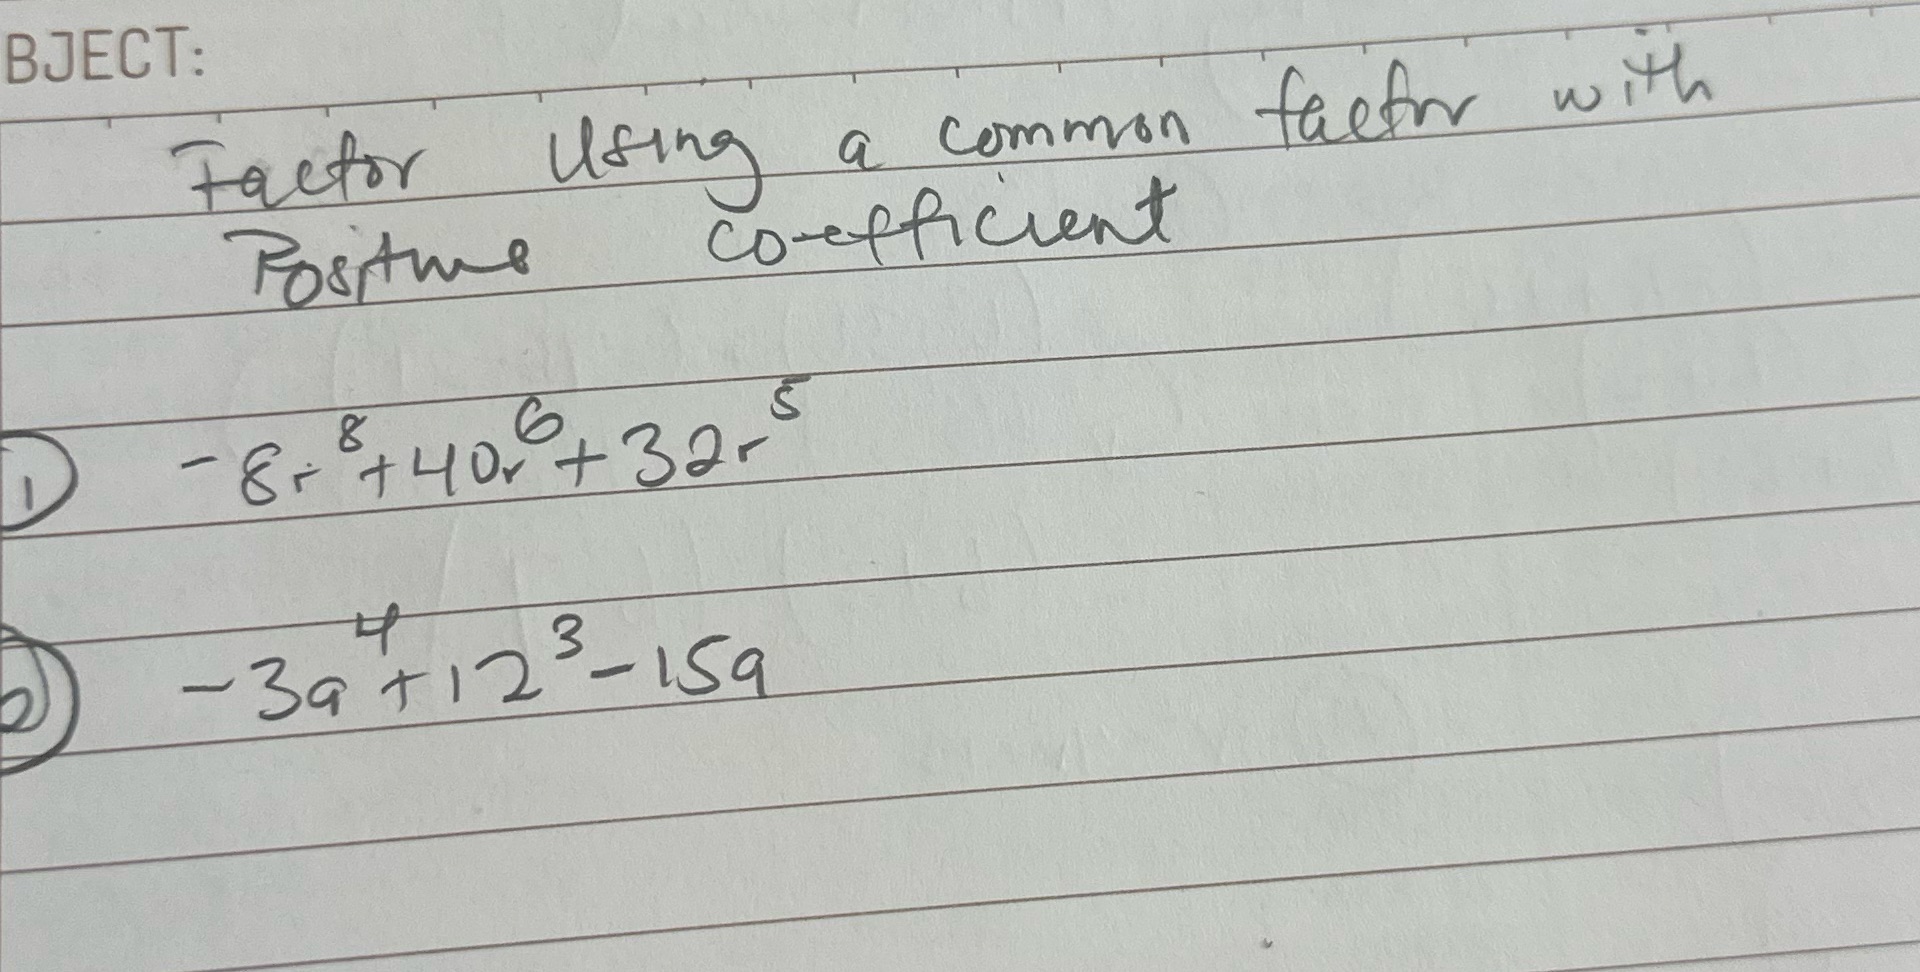 BJECT:
Factor Using a common factor with
Positive co-efficient
1) -8r⁸+40r⁶+32r⁵
2) -3a⁴+12³-15a